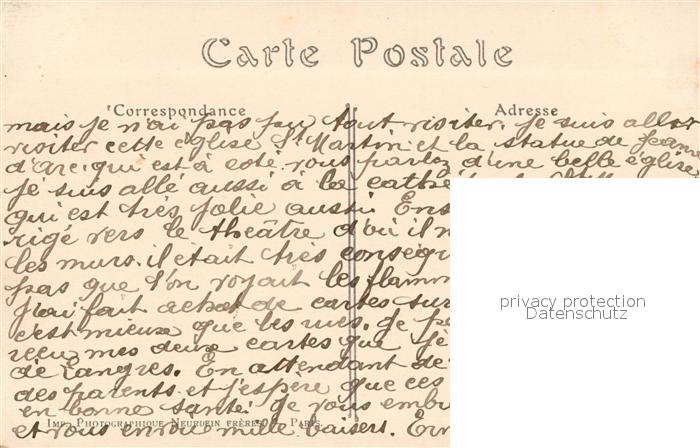 Carte Postale
Correspondance
Adresse
mais je n'ai pas pu tout visiter. Je suis aller
visiter cette église St Martin et la statue de Jeanne
d'arc. qui est à coté. vous parlez d'une belle église,
je suis allé aussi à la cathé
qui est très jolie aussi. Ens
rigé vers le théâtre d'où il n
les murs. il était très conséqu
pas que l'on voyait les flamm
j'ai fait achat de cartes sur
c'est mieux que les rues. Je pe
reçu mes deux cartes que je
de Langres. En attendant de
des parents et j'espère que ces
en bonne santé. Je vous embr
IMP. PHOTOGRAPHIQUE NEURDEIN FRÈRES PARIS.
et vous envoie mille baisers. Ern
privacy protection
Datenschutz